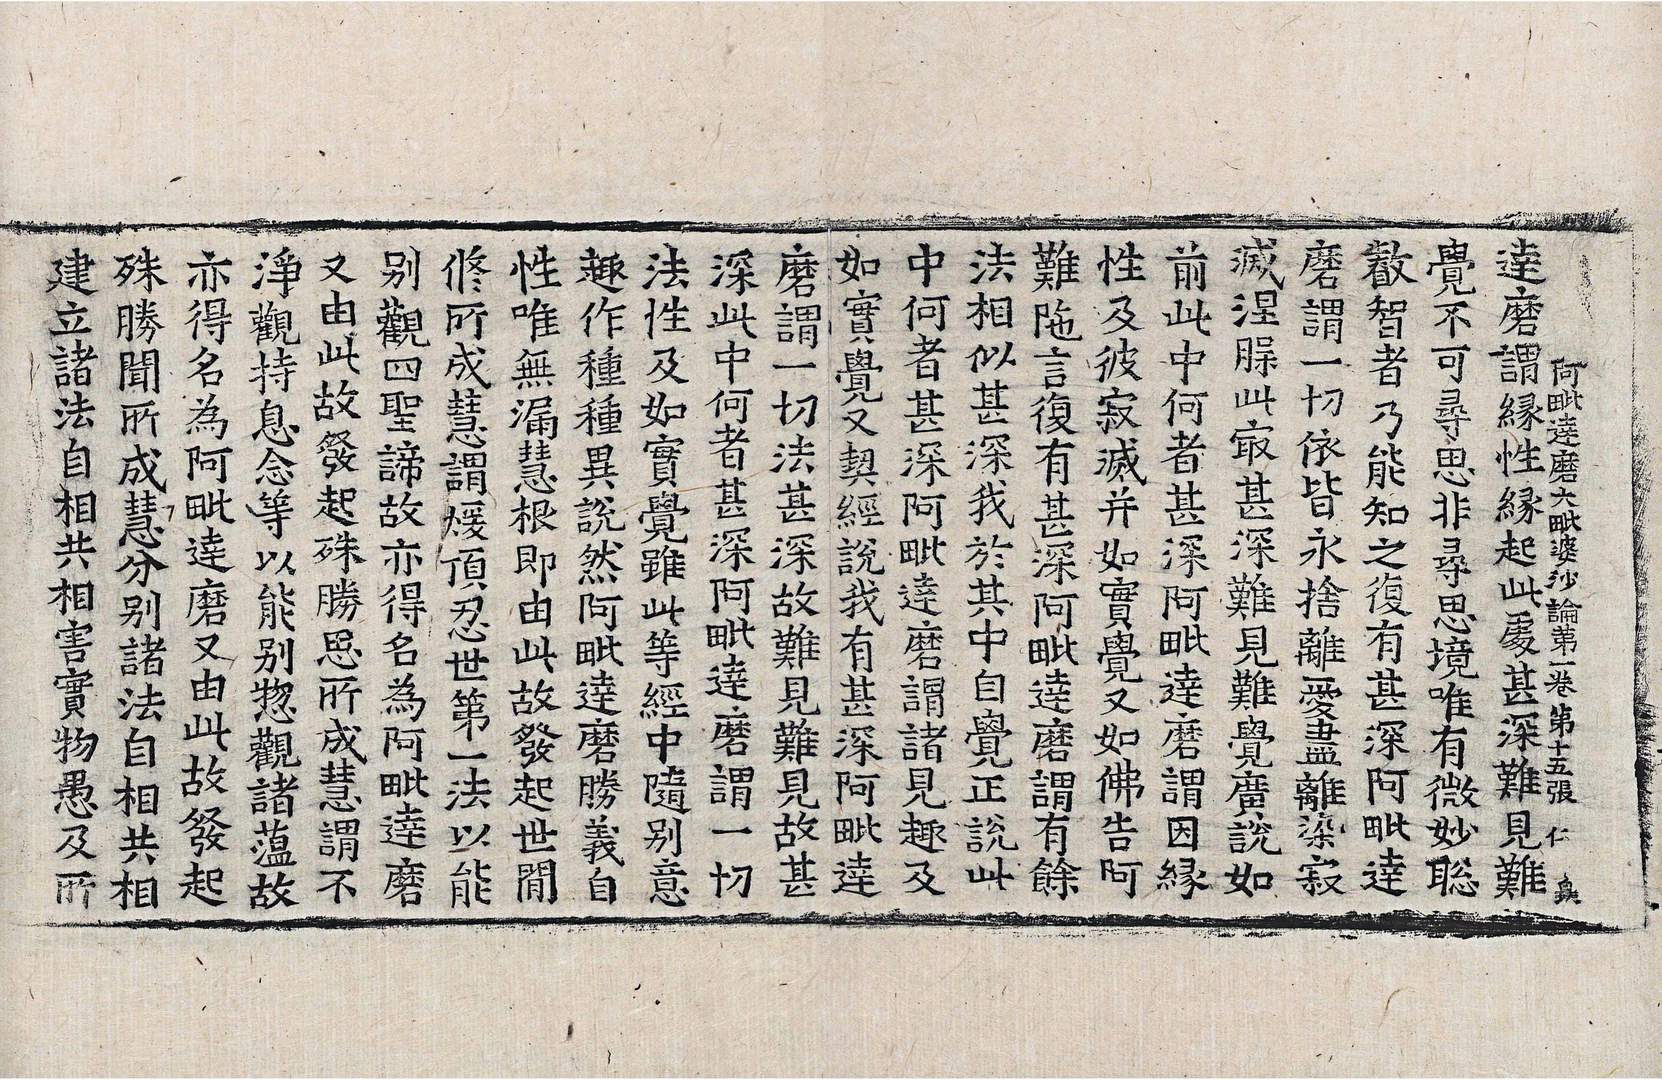 阿毗達磨大毗婆沙論第一卷 第十五張 仁
達磨謂縁性縁起此處甚深難見難
覺不可尋思非尋思境唯有微妙聡
叡智者乃能知之復有甚深阿毗達
磨謂一切依皆永捨離愛盡離染寂
滅涅槃此㝡甚深難見難覺廣說如
前此中何者甚深阿毗達磨謂因縁
性及彼寂滅并如實覺又如佛告阿
難陁言復有甚深阿毗達磨謂有餘
法相似甚深我於其中自覺正說此
中何者甚深阿毗達磨謂諸見趣及
如實覺又契經說我有甚深阿毗達
磨謂一切法甚深故難見難見故甚
深此中何者甚深阿毗達磨謂一切
法性及如實覺雖此等經中隨别意
趣作種種異說然阿毗達磨勝義自
性唯無漏慧根即由此故發起世間
修所成慧謂煖頂忍世第一法以能
别觀四聖諦故亦得名為阿毗達磨
又由此故發起殊勝思所成慧謂不
淨觀持息念等以能别惣觀諸蕰故
亦得名為阿毗達磨又由此故發起
殊勝聞所成慧分别諸法自相共相
建立諸法自相共相害實物愚及所